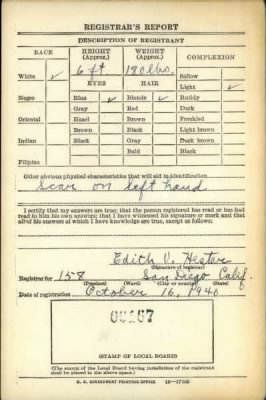 REGISTRAR'S REPORT
DESCRIPTION OF REGISTRANT
RACE HEIGHT (Approx.) WEIGHT (Approx.) COMPLEXION
6 ft. 180 lbs. Sallow
White ✓ EYES HAIR Light ✓
Negro Blue ✓ Blonde ✓ Ruddy
Gray Red Dark
Oriental Hazel Brown Freckled
Brown Black Light brown
Indian Black Gray Dark brown
Bald Black
Filipino
Other obvious physical characteristics that will aid in identification
Scar on left hand
I certify that my answers are true; that the person registered has read or has had
read to him his own answers; that I have witnessed his signature or mark and that
all of his answers of which I have knowledge are true, except as follows:
Edith V. Hester
(Signature of registrar)
Registrar for 158 San Diego Calif.
(Precinct) (Ward) (City or county) (State)
Date of registration October 16, 1940
STAMP OF LOCAL BOARD
(The stamp of the Local Board having jurisdiction of the registrant
shall be placed in the above space.)
U. S. GOVERNMENT PRINTING OFFICE